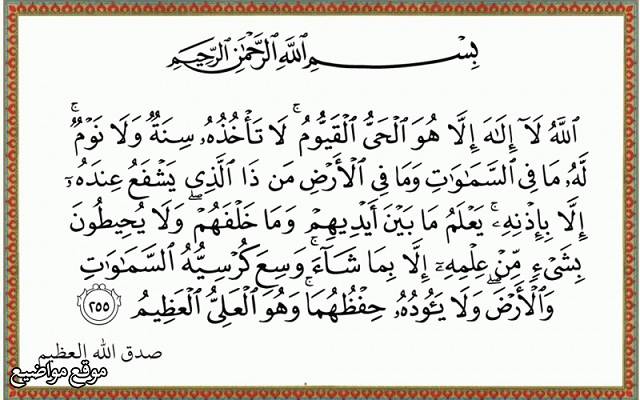 بِسْمِ ٱللَّهِ ٱلرَّحْمَٰنِ ٱلرَّحِيمِ
ٱللَّهُ لَآ إِلَٰهَ إِلَّا هُوَ ٱلْحَىُّ ٱلْقَيُّومُ ۚ لَا تَأْخُذُهُۥ سِنَةٌ وَلَا نَوْمٌ ۚ
لَّهُۥ مَا فِى ٱلسَّمَٰوَٰتِ وَمَا فِى ٱلْأَرْضِ ۗ مَن ذَا ٱلَّذِى يَشْفَعُ عِندَهُۥٓ
إِلَّا بِإِذْنِهِۦ ۚ يَعْلَمُ مَا بَيْنَ أَيْدِيهِمْ وَمَا خَلْفَهُمْ ۖ وَلَا يُحِيطُونَ
بِشَىْءٍ مِّنْ عِلْمِهِۦٓ إِلَّا بِمَا شَآءَ ۚ وَسِعَ كُرْسِيُّهُ ٱلسَّمَٰوَٰتِ
وَٱلْأَرْضَ ۖ وَلَا يَـُٔودُهُۥ حِفْظُهُمَا ۚ وَهُوَ ٱلْعَلِىُّ ٱلْعَظِيمُ ٢٥٥
صدق الله العظيم
موقع مواضيع